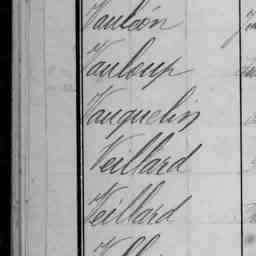 Vauloup
Vauquelin
Veillard
Veillard